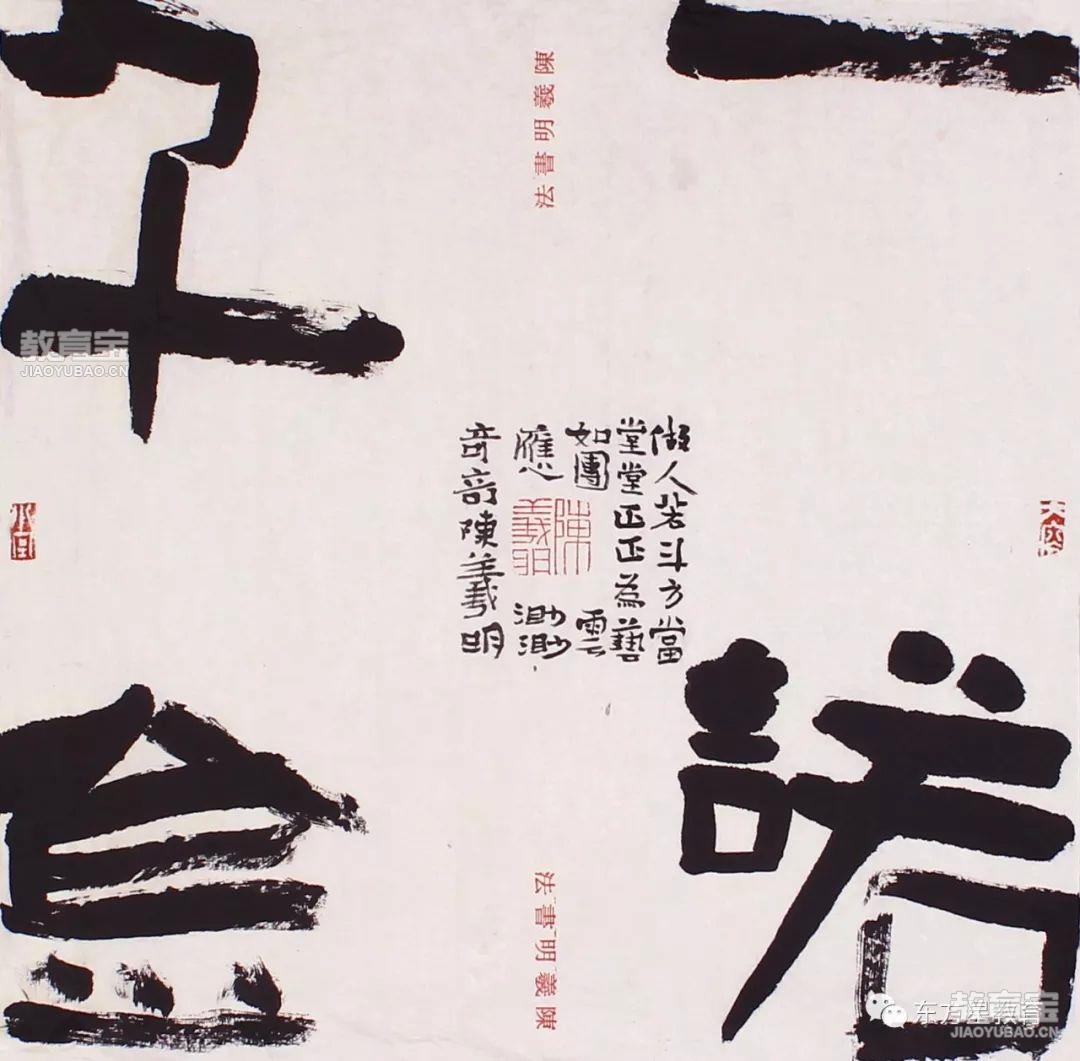 一諾
千金
陳羲明書法
做人若斗方當
堂堂正正為藝
如團雲
應渺渺
奇奇陳羲明
陳羲明
陳羲明書法
教育宝
JIAOYUBAO.CN
东方星教育
教育宝
JIAOYUBAO.CN